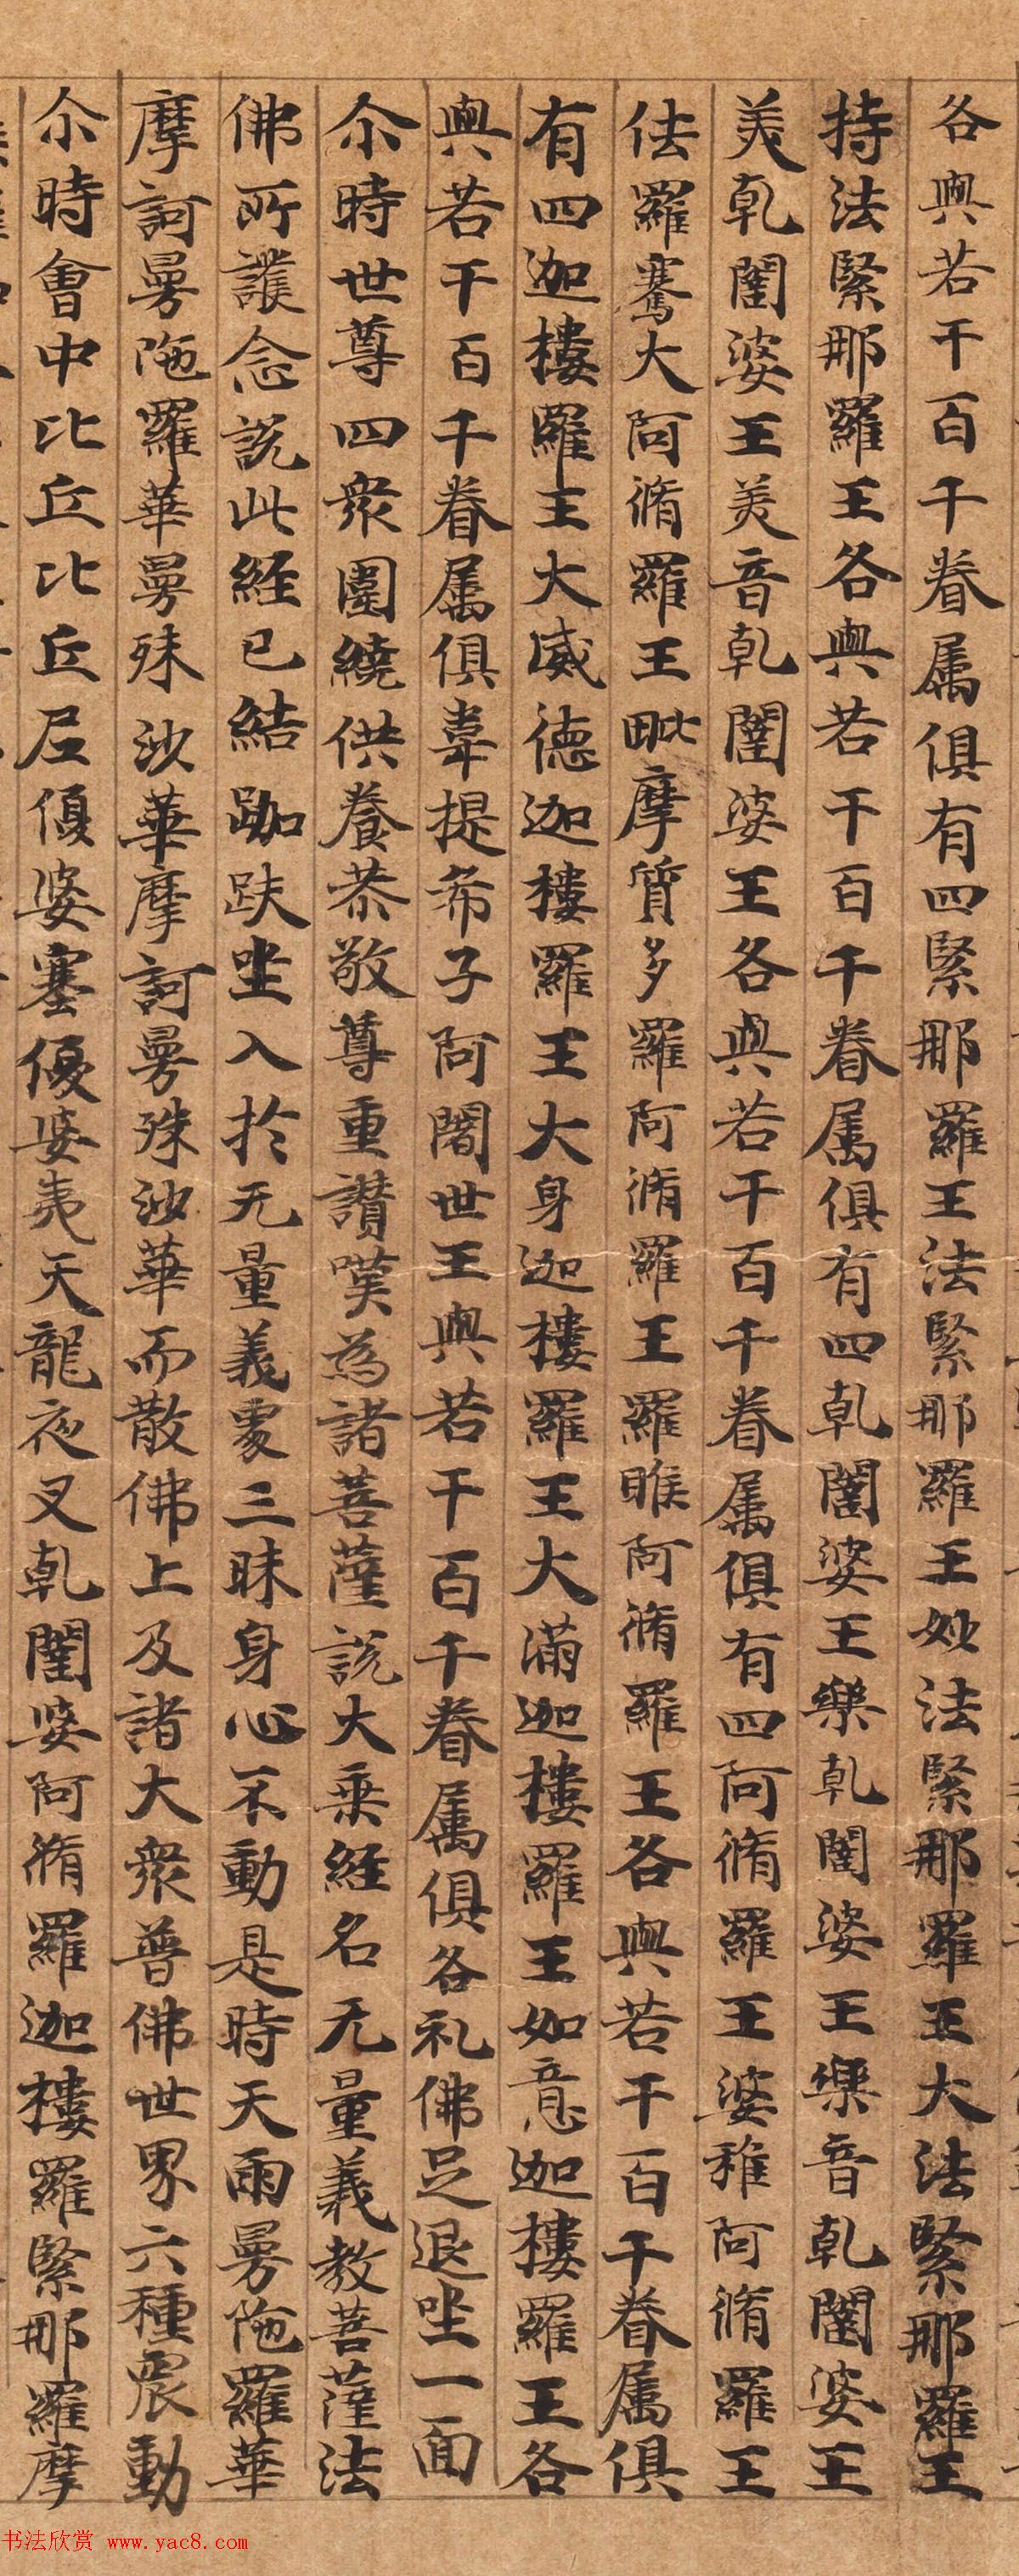 各與若干百千眷属俱有四緊那羅王法緊那羅王妙法緊那羅王大法緊那羅王
持法緊那羅王各與若干百千眷属俱有四乹闥婆王樂乹闥婆王樂音乹闥婆王
美乹闥婆王美音乹闥婆王各與若干百千眷属俱有四阿脩羅王婆稚阿脩羅王
佉羅騫大阿脩羅王毗摩質多羅阿脩羅王羅睺阿脩羅王各與若干百千眷属俱
有四迦樓羅王大威德迦樓羅王大身迦樓羅王大滿迦樓羅王如意迦樓羅王各
與若干百千眷属俱韋提希子阿闍世王與若干百千眷属俱各礼佛足退坐一面
尒時世尊四衆圍繞供養恭敬尊重讃嘆為諸菩薩說大乘經名无量義教菩薩法
佛所護念說此經已結跏趺坐入於无量義處三昧身心不動是時天雨曼陁羅華
摩訶曼陁羅華曼殊沙華摩訶曼殊沙華而散佛上及諸大衆普佛世界六種震動
尒時會中比丘比丘尼優婆塞優婆夷天龍夜叉乹闥婆阿脩羅迦樓羅緊那羅摩
书法欣赏 www.yac8.com